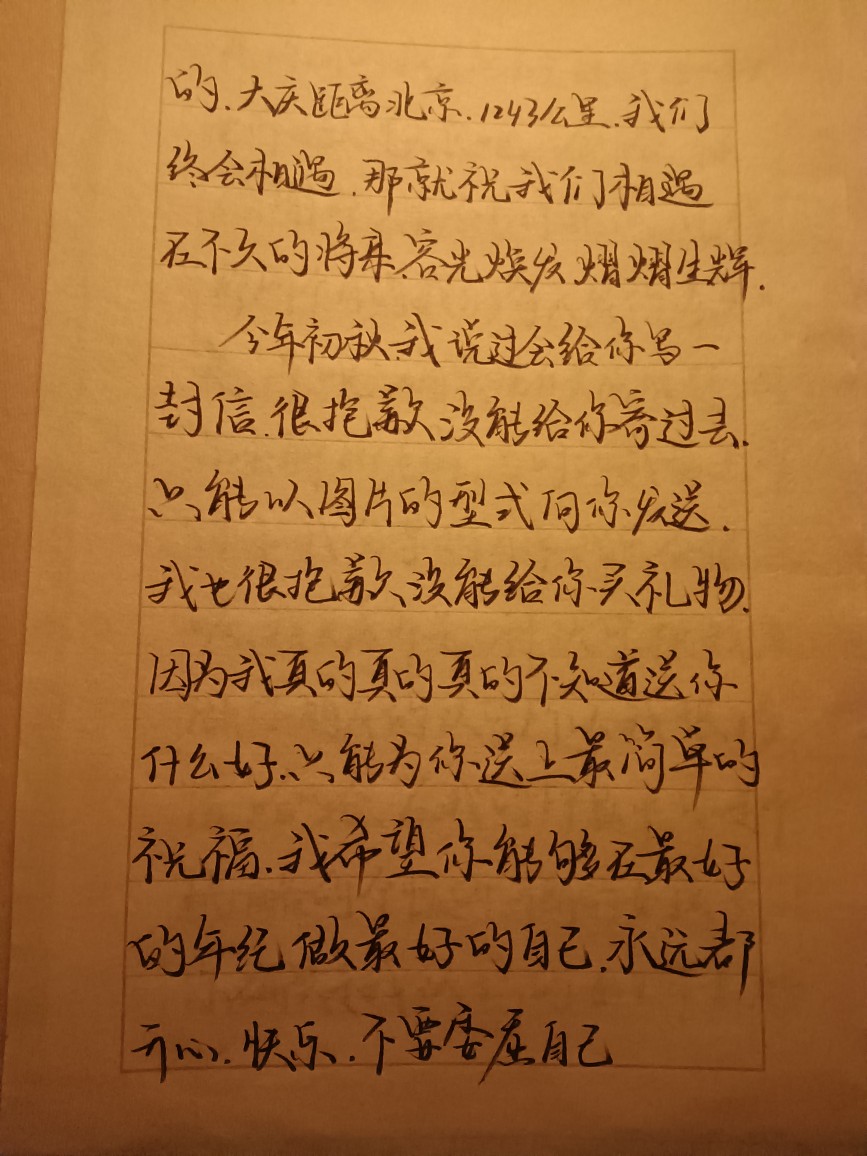 的.大庆距离北京.1243公里.我们
终会相遇.那就祝我们相遇
在不久的将来.容光焕发,熠熠生辉.
今年初秋.我说过会给你写一
封信.很抱歉,没能给你寄过去.
只能以图片的型式向你发送.
我也很抱歉,没能给你买礼物.
因为我真的真的真的不知道送你
什么好.只能为你送上最简单的
祝福.我希望你能够在最好
的年纪做最好的自己.永远都
开心.快乐.不要委屈自己